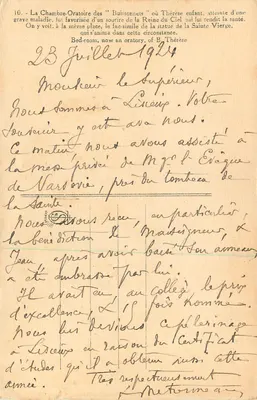 16. - La Chambre-Oratoire des "Buissonnets" où Thérèse enfant, atteinte d'une
grave maladie, fut favorisée d'un sourire de la Reine du Ciel qui lui rendit la santé.
On y voit, à la même place, le fac-similé de la statue de la Sainte Vierge,
qui s'anima dans cette circonstance.
Bed-room, now an oratory, of B. Thérèse
23 Juillet 1924
Monsieur le Supérieur,
Nous sommes à Lisieux. Votre
souvenir y est avec nous.
Ce matin nous avons assisté à
la messe privée de Mgr l'Evêque
de Varsovie, près du tombeau de
la Sainte.
Nous avons reçu, en particulier,
la bénédiction de Monseigneur, et
Jean, après avoir baisé son anneau
a été embrassé par lui.
Il avait eu, au collège le prix
d'excellence, & fois nommé.
Nous lui devions ce pélerinage
à Lisieux en raison du Certificat
d'études qu'il a obtenu aussi cette
année.
Très respectueusement